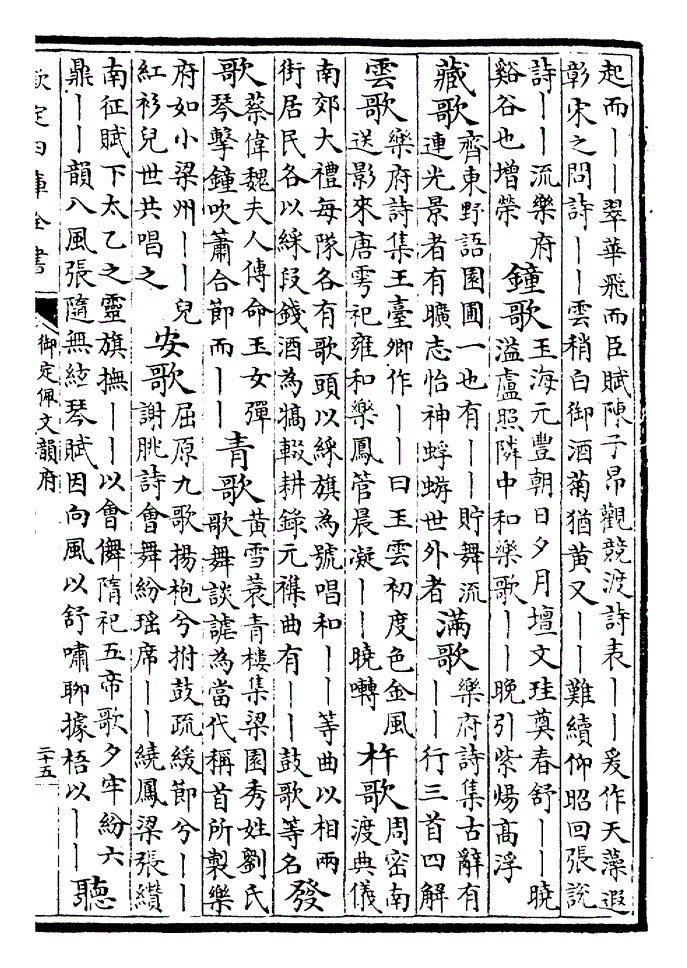 起而｜｜翠華飛而臣賦陳子昂觀競渡詩表｜｜爰作天藻遐
彰宋之問詩｜｜雲稍白御酒菊猶黃又｜｜難續仰昭回張說
詩｜｜流樂府
谿谷也增榮
鐘歌
玉海元豐朝日夕月壇文珪奠春舒｜｜曉
溢盧照隣中和樂歌｜｜晚引紫煬高浮
藏歌
齊東野語園圃一也有｜｜貯舞流
連光景者有曠志怡神蜉蝣世外者
滿歌
樂府詩集古辭有
｜｜行三首四解
雲歌
樂府詩集王臺卿作｜｜曰玉雲初度色金風
送影來唐雩祀雍和樂鳳管晨凝｜｜曉囀
杵歌
周密南
渡典儀
南郊大禮每隊各有歌頭以綵旗為號唱和｜｜等曲以相兩
街居民各以綵段錢酒為犒輟耕錄元襍曲有｜｜鼓歌等名
發
歌
蔡偉魏夫人傳命玉女彈
琴擊鐘吹簫合節而｜｜
青歌
黃雪蓑青樓集梁園秀姓劉氏
歌舞談謔為當代稱首所製樂
府如小梁州｜｜兒
紅衫兒世共唱之
安歌
屈原九歌揚枹兮拊鼓疏緩節兮｜｜
謝朓詩會舞紛瑤席｜｜繞鳳梁張纘
南征賦下太乙之靈旗撫｜｜以會儛隋祀五帝歌夕牢紛六
鼎｜｜韻八風張隨無絃琴賦因向風以舒嘯聊據梧以｜｜
聽
欽定四庫全書
御定佩文韻府
二十五